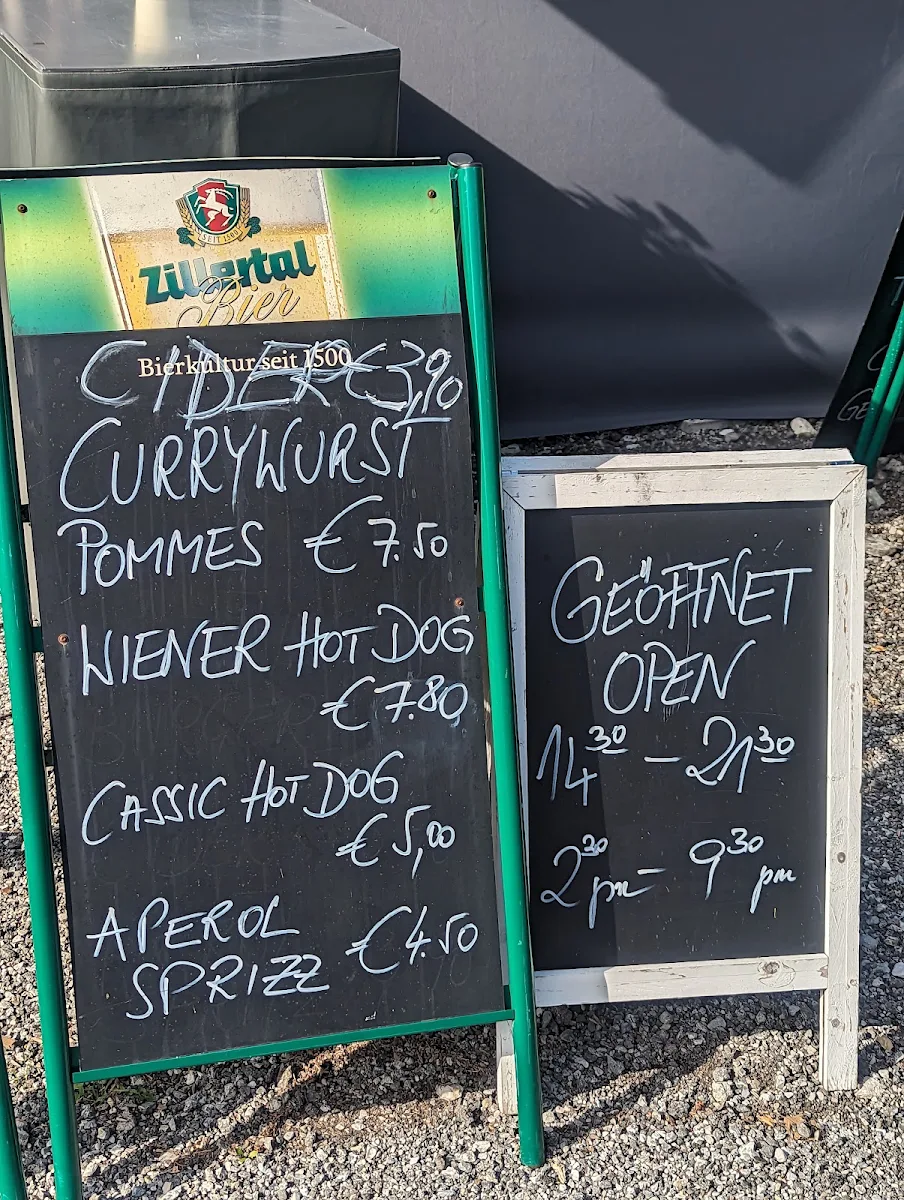 SEIT 1500
Zillertal
Bier
Bierkultur seit 1500
CIDER €3,90
CURRYWURST
POMMES €7.50
WIENER HOT DOG
€7.80
CASSIC HOT DOG
€5,00
APEROL
SPRIZZ €4.50
GEÖFFNET
OPEN
14³⁰ – 21³⁰
2³⁰ pm – 9³⁰ pm